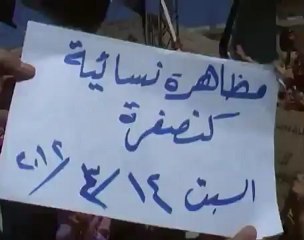 مظاهرة نسائية
كنصفرة
السبت ١٤/٣/٢٠١٢